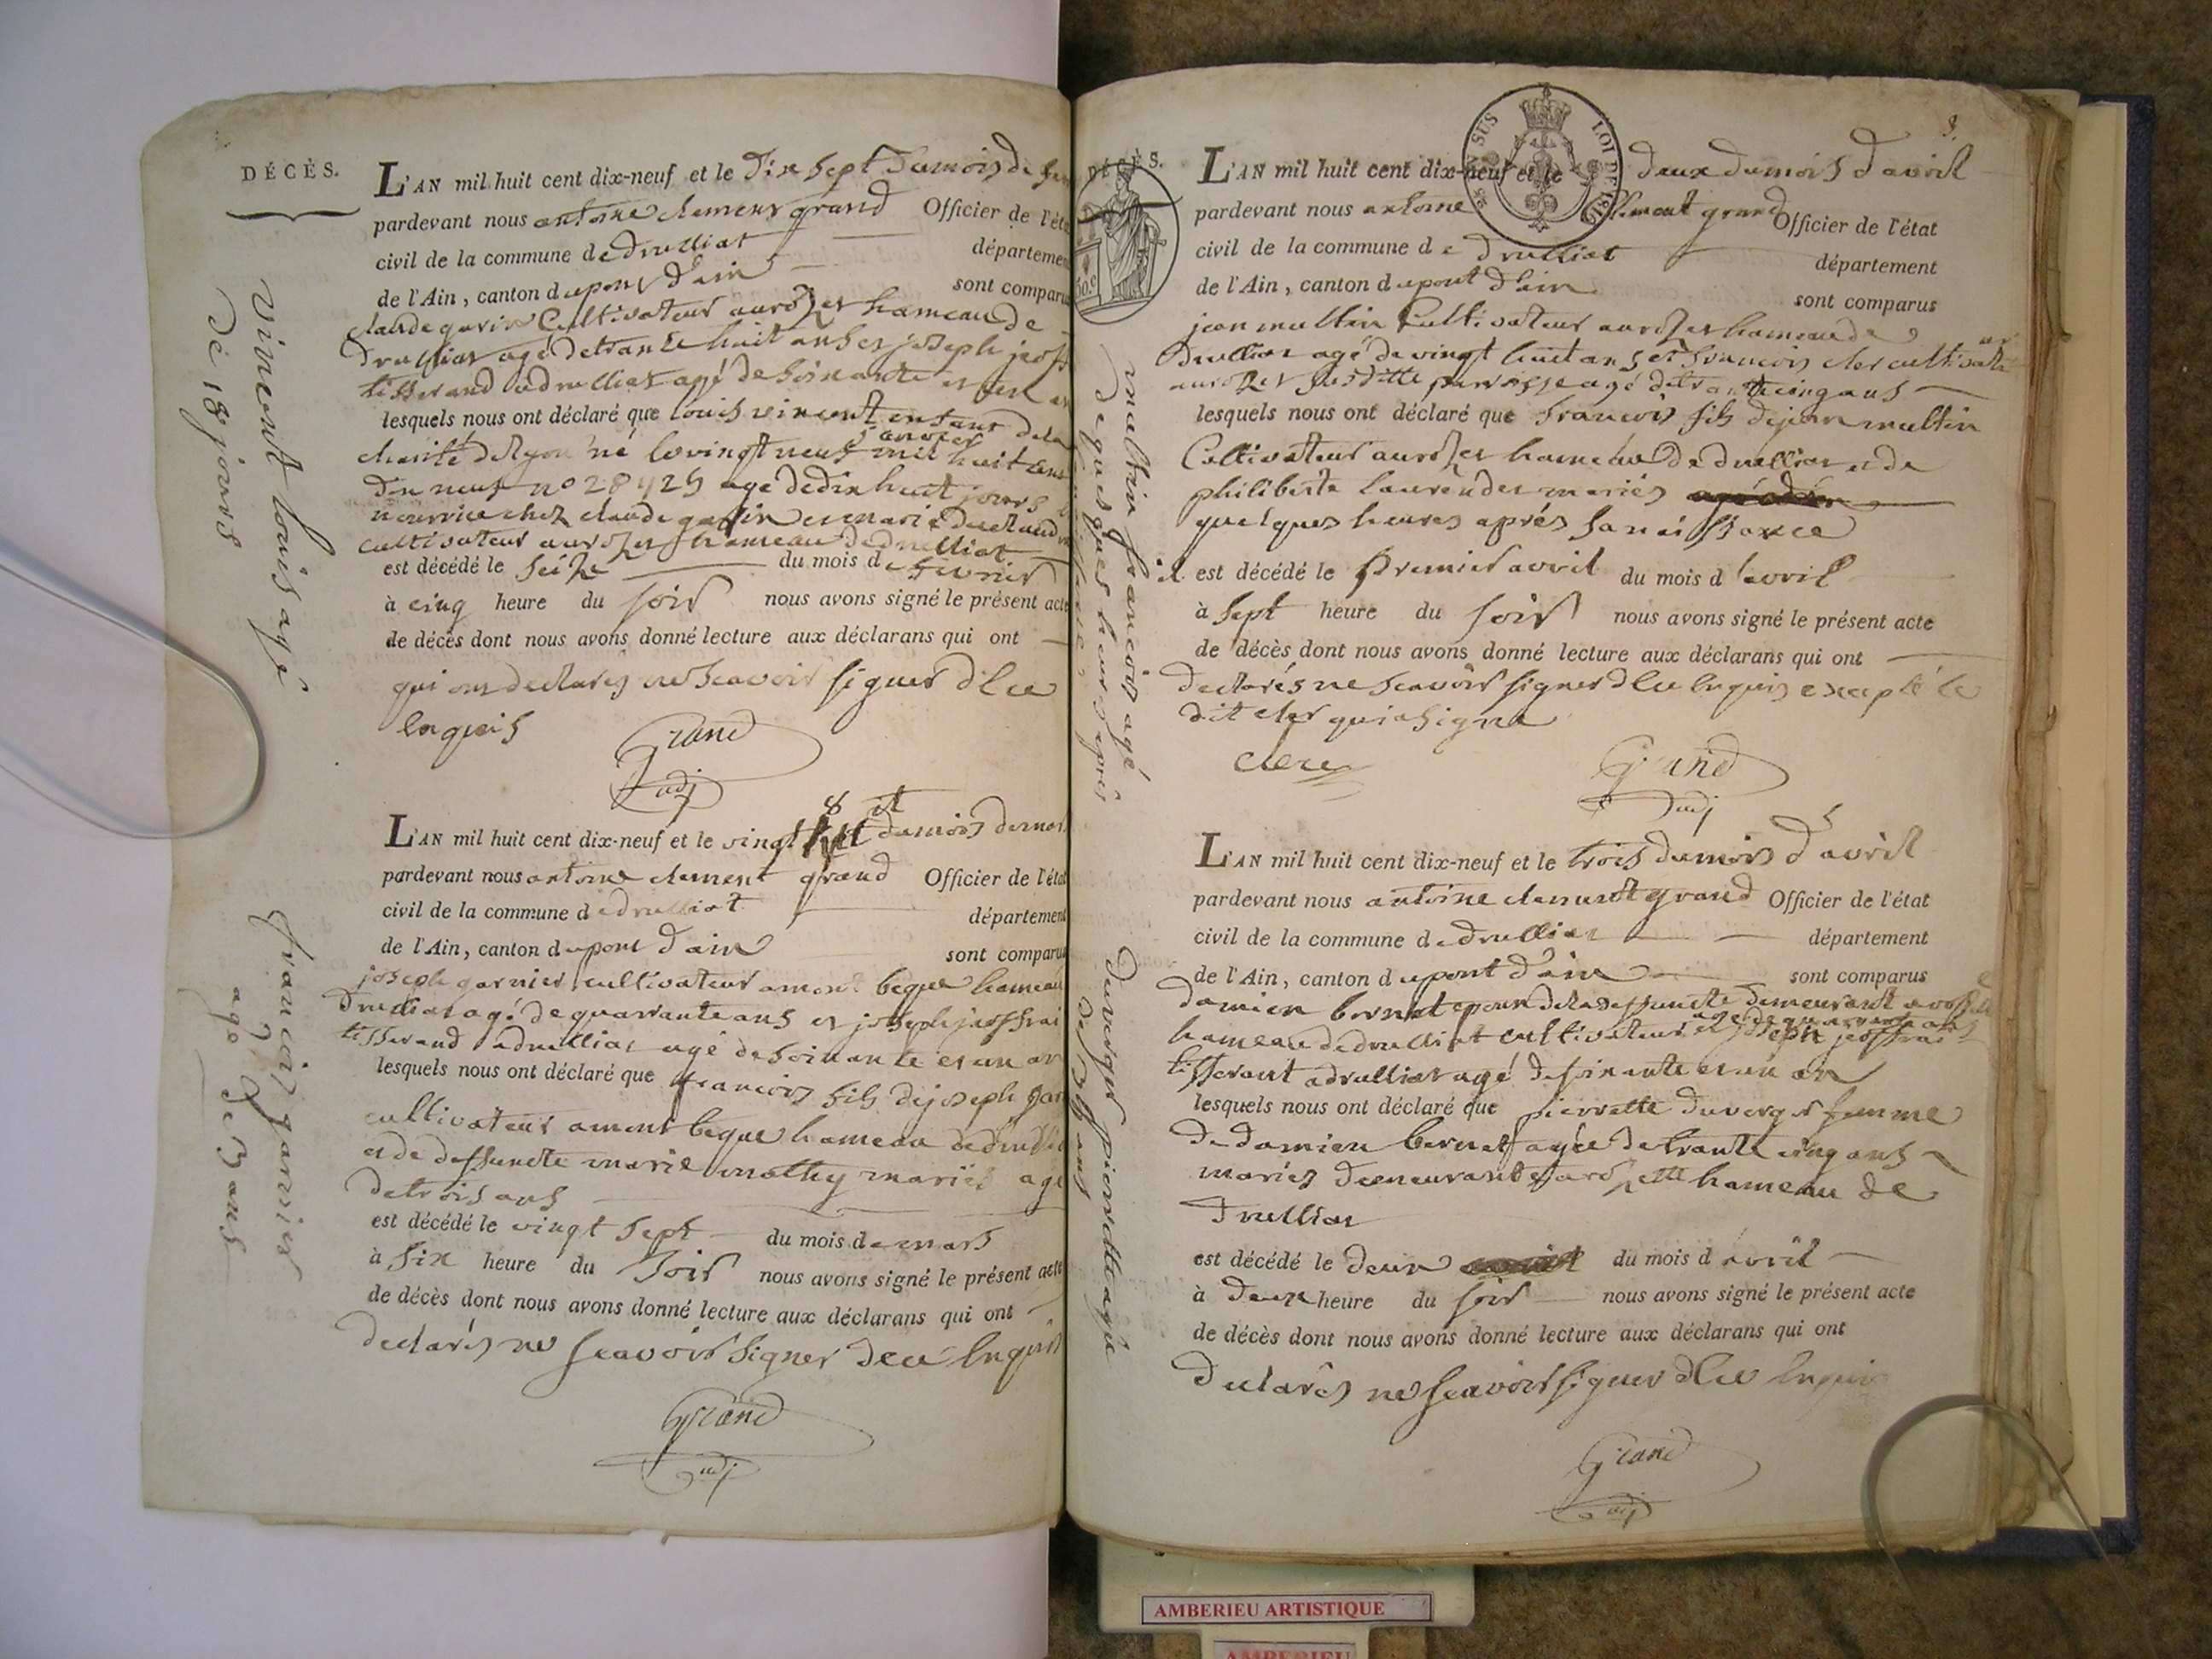 DÉCÈS.
L'AN mil huit cent dix-neuf et le Dix sept Dumois de
pardevant nous antoine clement grand Officier de l'éta
civil de la commune de Drulliat départemen
de l'Ain, canton dupont D'ain sont comparu
claude Cultivateur hameau de
Drulliat agé detrante huit ans et joseph
tisserand adrulliat agé de soixante et un
lesquels nous ont déclaré que louis vincent enfant dela
janvier
charité delyon né levingt neuf mil huit cent
Dix neuf no age dedix huit jours
nourrice chez claude et marie
cultivateur hameau Dedrulliat
est décédé le seize du mois de fevrier
à cinq heure du soir nous avons signé le présent acte
de décès dont nous avons donné lecture aux déclarans qui ont
qui ont declarés ne scavoir signer D'lce
Enquis
Grand
adj
vincent louis agé
De 18 jours
L'AN mil huit cent dix-neuf et le vingt 8 it dumois demar
pardevant nous antoine clement grand Officier de l'éta
civil de la commune dedrulliat département
de l'Ain, canton dupont D'ain sont comparu
joseph garnier cultivateur amont beque hameau
Drulliat agé dequarante ans et joseph
tisserand adrulliat agé desoixante et un an
lesquels nous ont déclaré que francois fils dejoseph gar
cultivateur amont beque hameau dedrulli
et de deffuncte marie mathy mariés agé
detrois ans
est décédé le vingt sept du mois de mars
à six heure du soir nous avons signé le présent acte
de décès dont nous avons donné lecture aux déclarans qui ont
declarés ne scavoir signer Dece Enquis
Grand
adj
francois garnier
agé de 3 ans
8.
DÉCÈS.
L'AN mil huit cent dix-neuf et le deux dumois d'avril
pardevant nous antoine Clement grand Officier de l'état
civil de la commune de Drulliat département
de l'Ain, canton dupont D'ain sont comparus
jean multin Cultivateur hameau de
Drulliat agé de vingt huit ans et francois clerc cultivateur
susditte parroisse agé detrante cinq ans
lesquels nous ont déclaré que francois fils dejean multin
Cultivateur hameau Dedrulliat et de
philiberte mariés
quelques heures aprés sa naissance
il est décédé le Premier avril du mois d'avril
à sept heure du soir nous avons signé le présent acte
de décès dont nous avons donné lecture aux déclarans qui ont
declarés ne scavoir signer Enquis excepté le
dit clerc qui a signe
clerc
Grand
adj
multin francois agé
de quelques heures aprés
L'AN mil huit cent dix-neuf et le trois dumois d'avril
pardevant nous antoine clement grand Officier de l'état
civil de la commune dedrulliat département
de l'Ain, canton dupont D'ain sont comparus
Damien bernet epoux deladeffuncte demeurant
agé de quarante ans
hameau dedrulliat cultivateur et joseph
tisserant adrulliat agé desoixante et un an
lesquels nous ont déclaré que pierrette duverger femme
de damien bernet agée detrante cinq ans
mariés demeurants hameau de
Drulliat
est décédé le deux du mois d'avril
à deux heure du soir nous avons signé le présent acte
de décès dont nous avons donné lecture aux déclarans qui ont
Declarés ne scavoir signer Enquis
Grand
adj
duverger pierrette agée
de 35 ans
AMBERIEU ARTISTIQUE
AMBERIEU